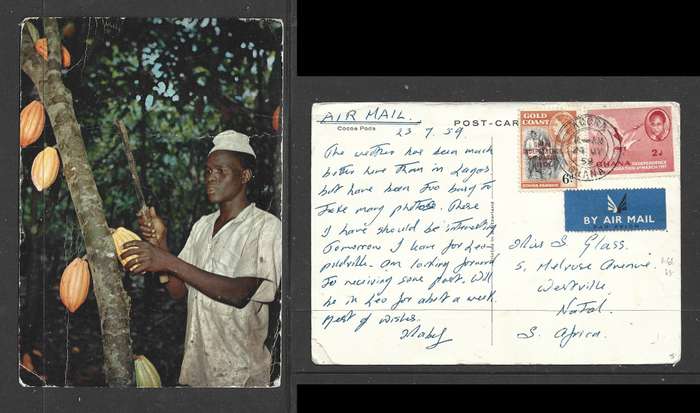 AIR MAIL.
POST-CAR
Cocoa Pods
23 7. 59
The wether has been much
better here than in Lagos
but have been too busy to
take many photos. These
I have should be interesting
Tomorrow I leave for Leo-
poldville. Am looking forward
to receiving some post. Will
be in Leo for about a week.
Best of wishes.
GOLD
COAST
6d
GHANA
INDEPENDENCE
6TH MARCH 1957
2d
ACCRA
59
GHANA
BY AIR MAIL
PAR AVION
Miss S Glass.
5, Melrose Avenue.
Westville
Natal.
S. Africa.